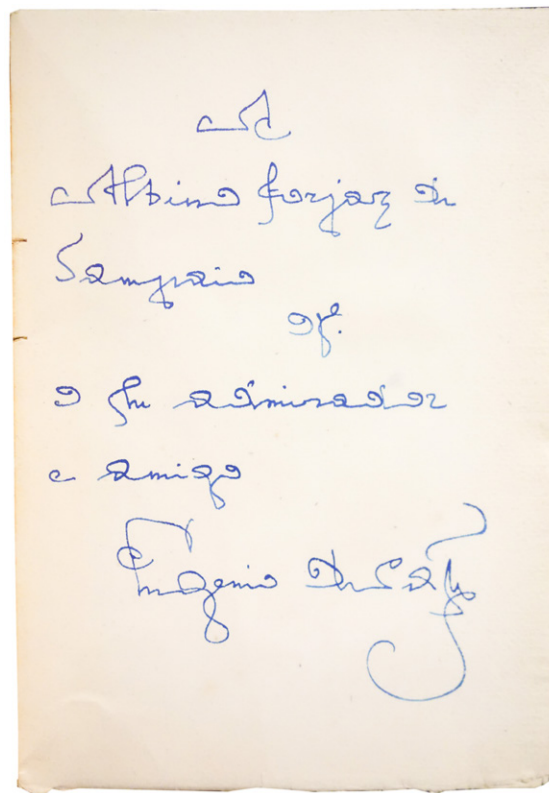 A
Albino Forjaz de
Sampaio
of.
o seu admirador
e amigo
Eugenio de Castro